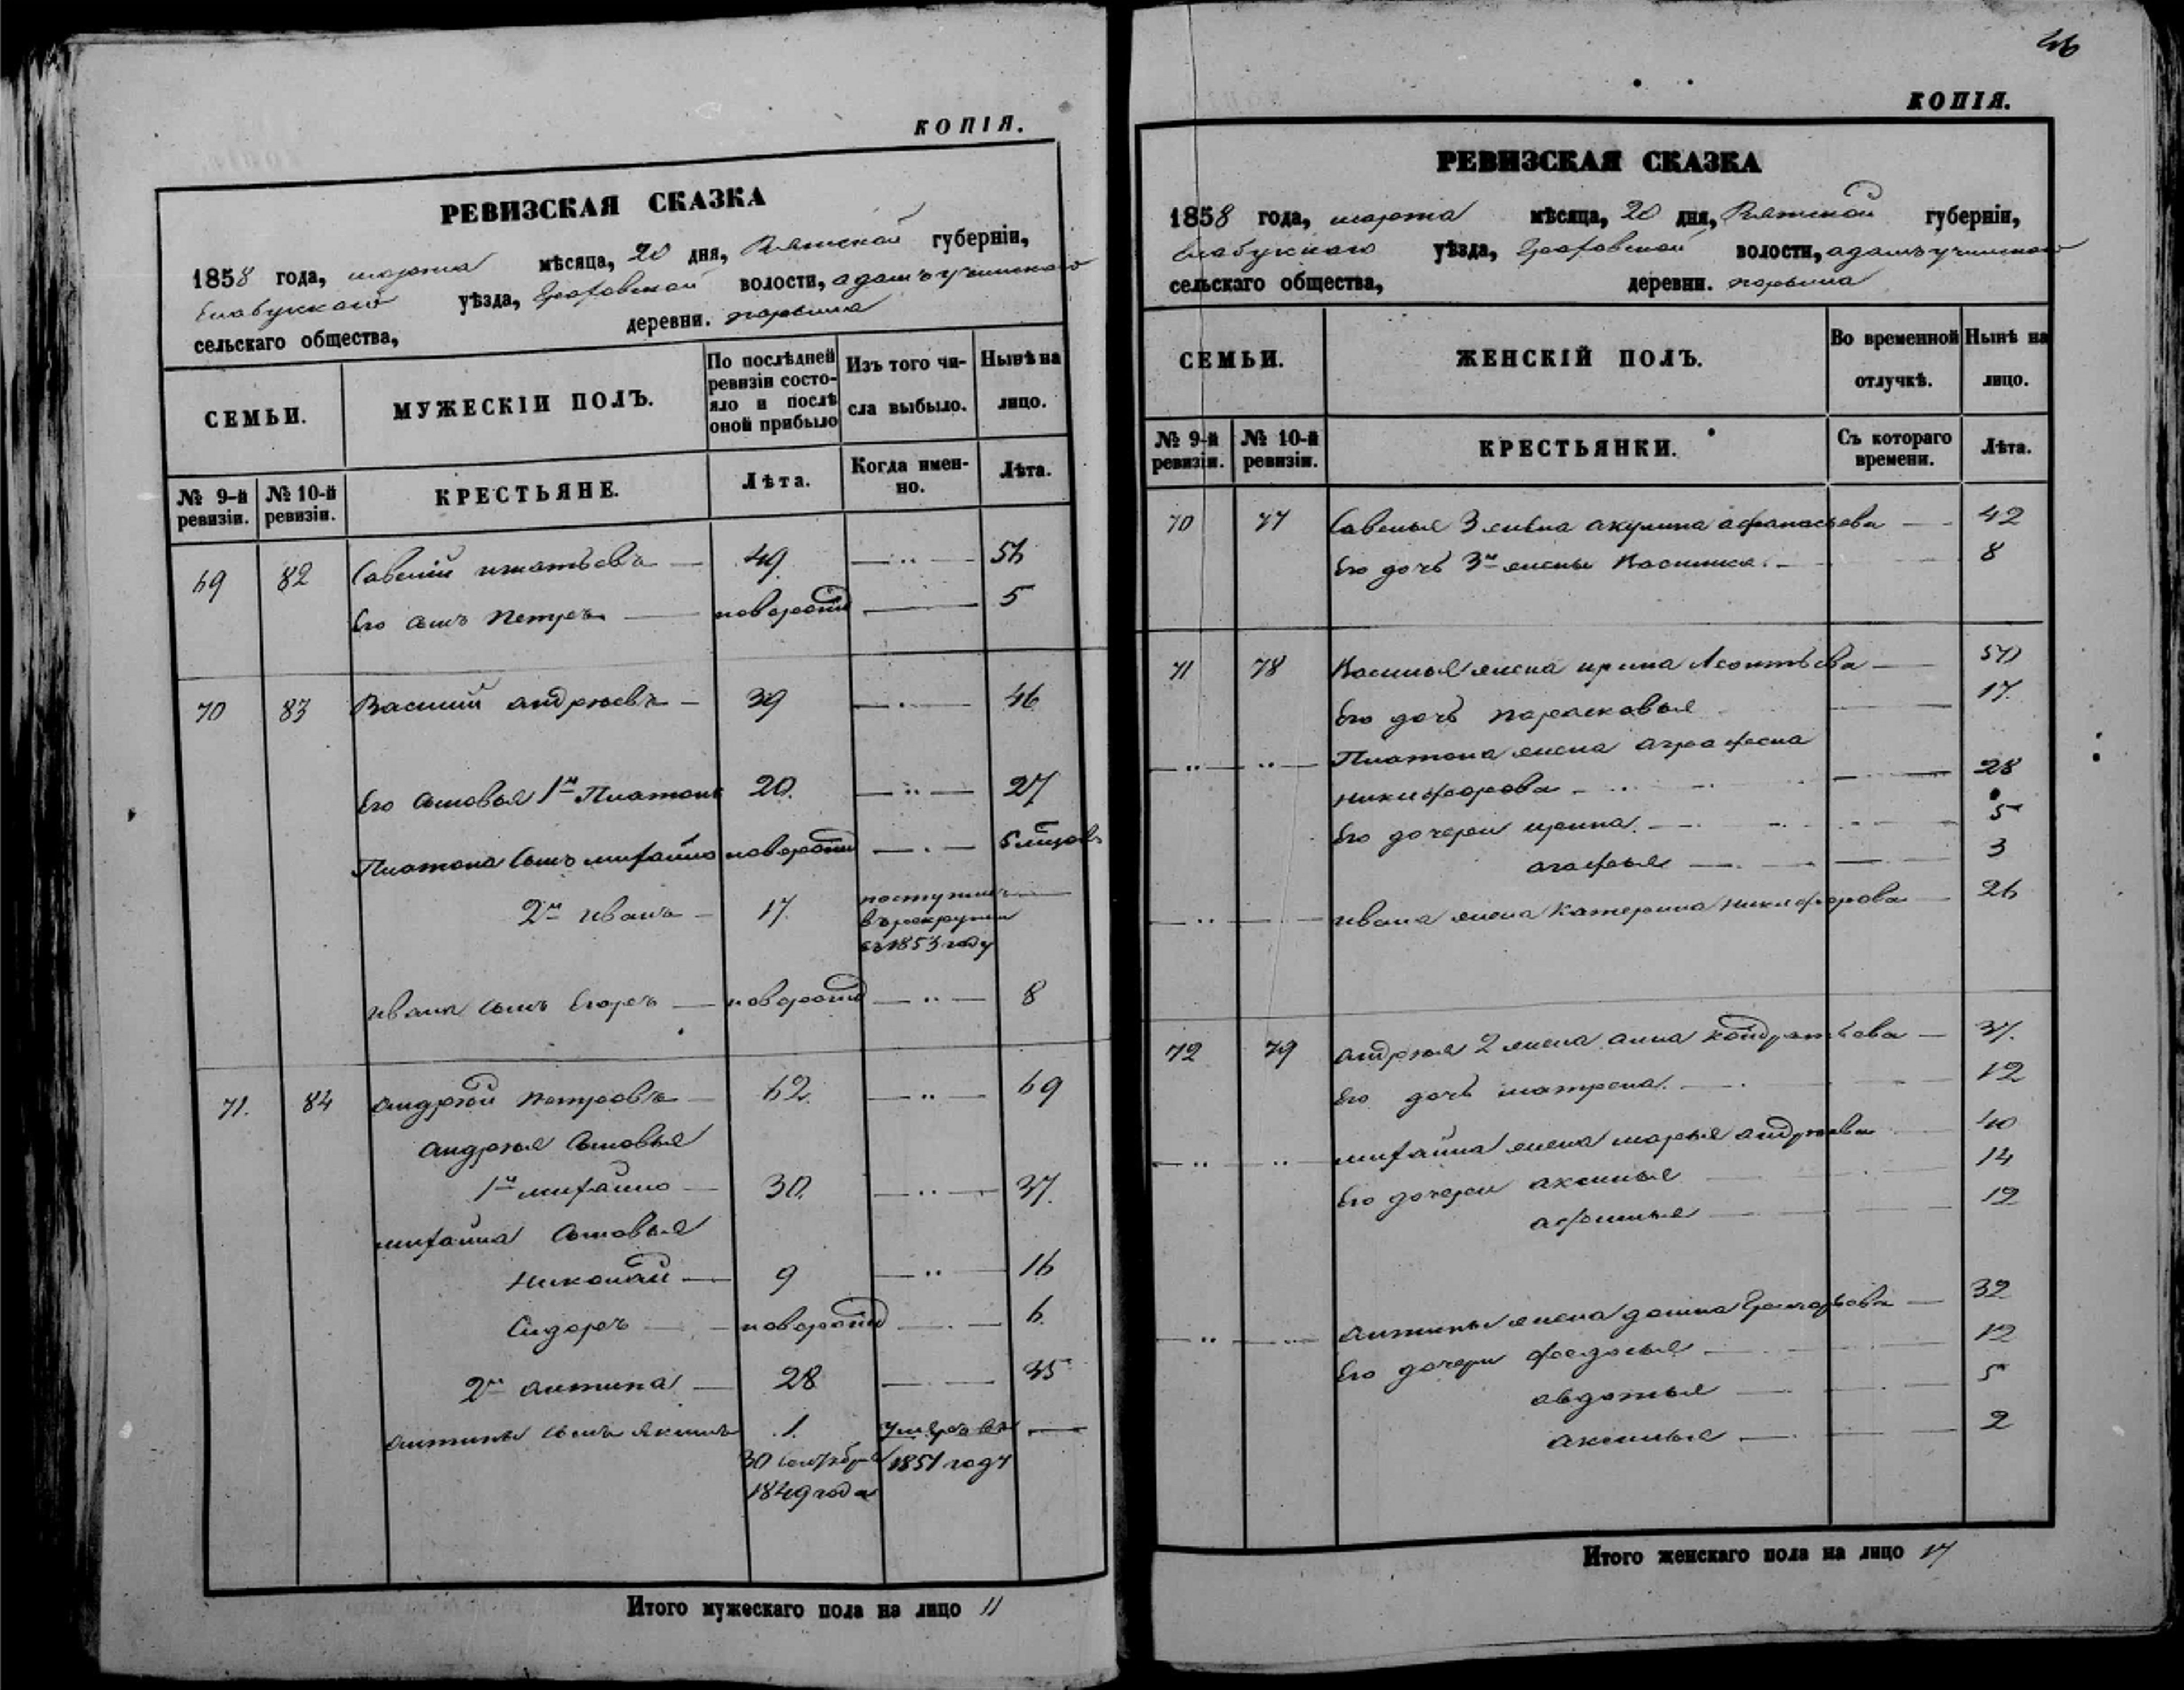 КОПІЯ.
РЕВИЗСКАЯ СКАЗКА
1858 года, марта мѣсяца, 20 дня, Вятской губерніи,
Елабужскаго уѣзда, Граховской волости, адамъучинскаго
сельскаго общества, деревни.
СЕМЬИ.
МУЖЕСКІЙ ПОЛЪ.
По послѣдней ревизіи состояло и послѣ оной прибыло
Изъ того числа выбыло.
Нынѣ на лицо.
№ 9-й ревизіи.
№ 10-й ревизіи.
КРЕСТЬЯНЕ.
Лѣта.
Когда именно.
Лѣта.
69 82 Савелий игнатьевъ — 49 — 56
Его сынъ Петръ — новорожд — 5
70 83 Василий андреевъ — 39 — 46
Его сыновья 1й Платонъ 20. — 27
Платона сынъ михайло новорожд —
2й иванъ — 17. поступилъ
въ рекруты
въ 1853 году
ивана сынъ Егоръ — новорожд — 8
71. 84 андрей петровъ — 62. — 69
андрея сыновья
1й михайло — 30. — 37.
михайла сыновья
николай — 9 — 16
Сидоръ — новорожд — 6.
2й антипа — 28 — 35
антипы сынъ якимъ 1. умеръ въ —
30 1851 году
1849 года
Итого мужескаго пола на лицо 11
46
КОПІЯ.
РЕВИЗСКАЯ СКАЗКА
1858 года, марта мѣсяца, 20 дня, Вятской губерніи,
Елабужскаго уѣзда, Граховской волости, адамъучинскаго
сельскаго общества, деревни.
СЕМЬИ.
ЖЕНСКІЙ ПОЛЪ.
Во временной отлучкѣ.
Нынѣ на лицо.
№ 9-й ревизіи.
№ 10-й ревизіи.
КРЕСТЬЯНКИ.
Съ котораго времени.
Лѣта.
70 77 Савелья 3 жена акулина афанасьева — 42
Его дочь 3й жены Василиса. — 8
71 78 Василья жена ирина Леонтьева —
Его дочь парасковья — 17.
Платона жена аграфена
никифорова — 28
Его дочери ирина. — 5
агафья — 3
ивана жена Катерина никифорова — 26
72 79 андрея 2 жена анна кондратьева — 37.
Его дочь матрена. — 12
михайла жена марья андреева — 40
Его дочери аксинья — 14
афимья — 12
антипы жена домна григорьева — 32
Его дочери федосья — 12
авдотья — 5
аксинья — 2
Итого женскаго пола на лицо 17